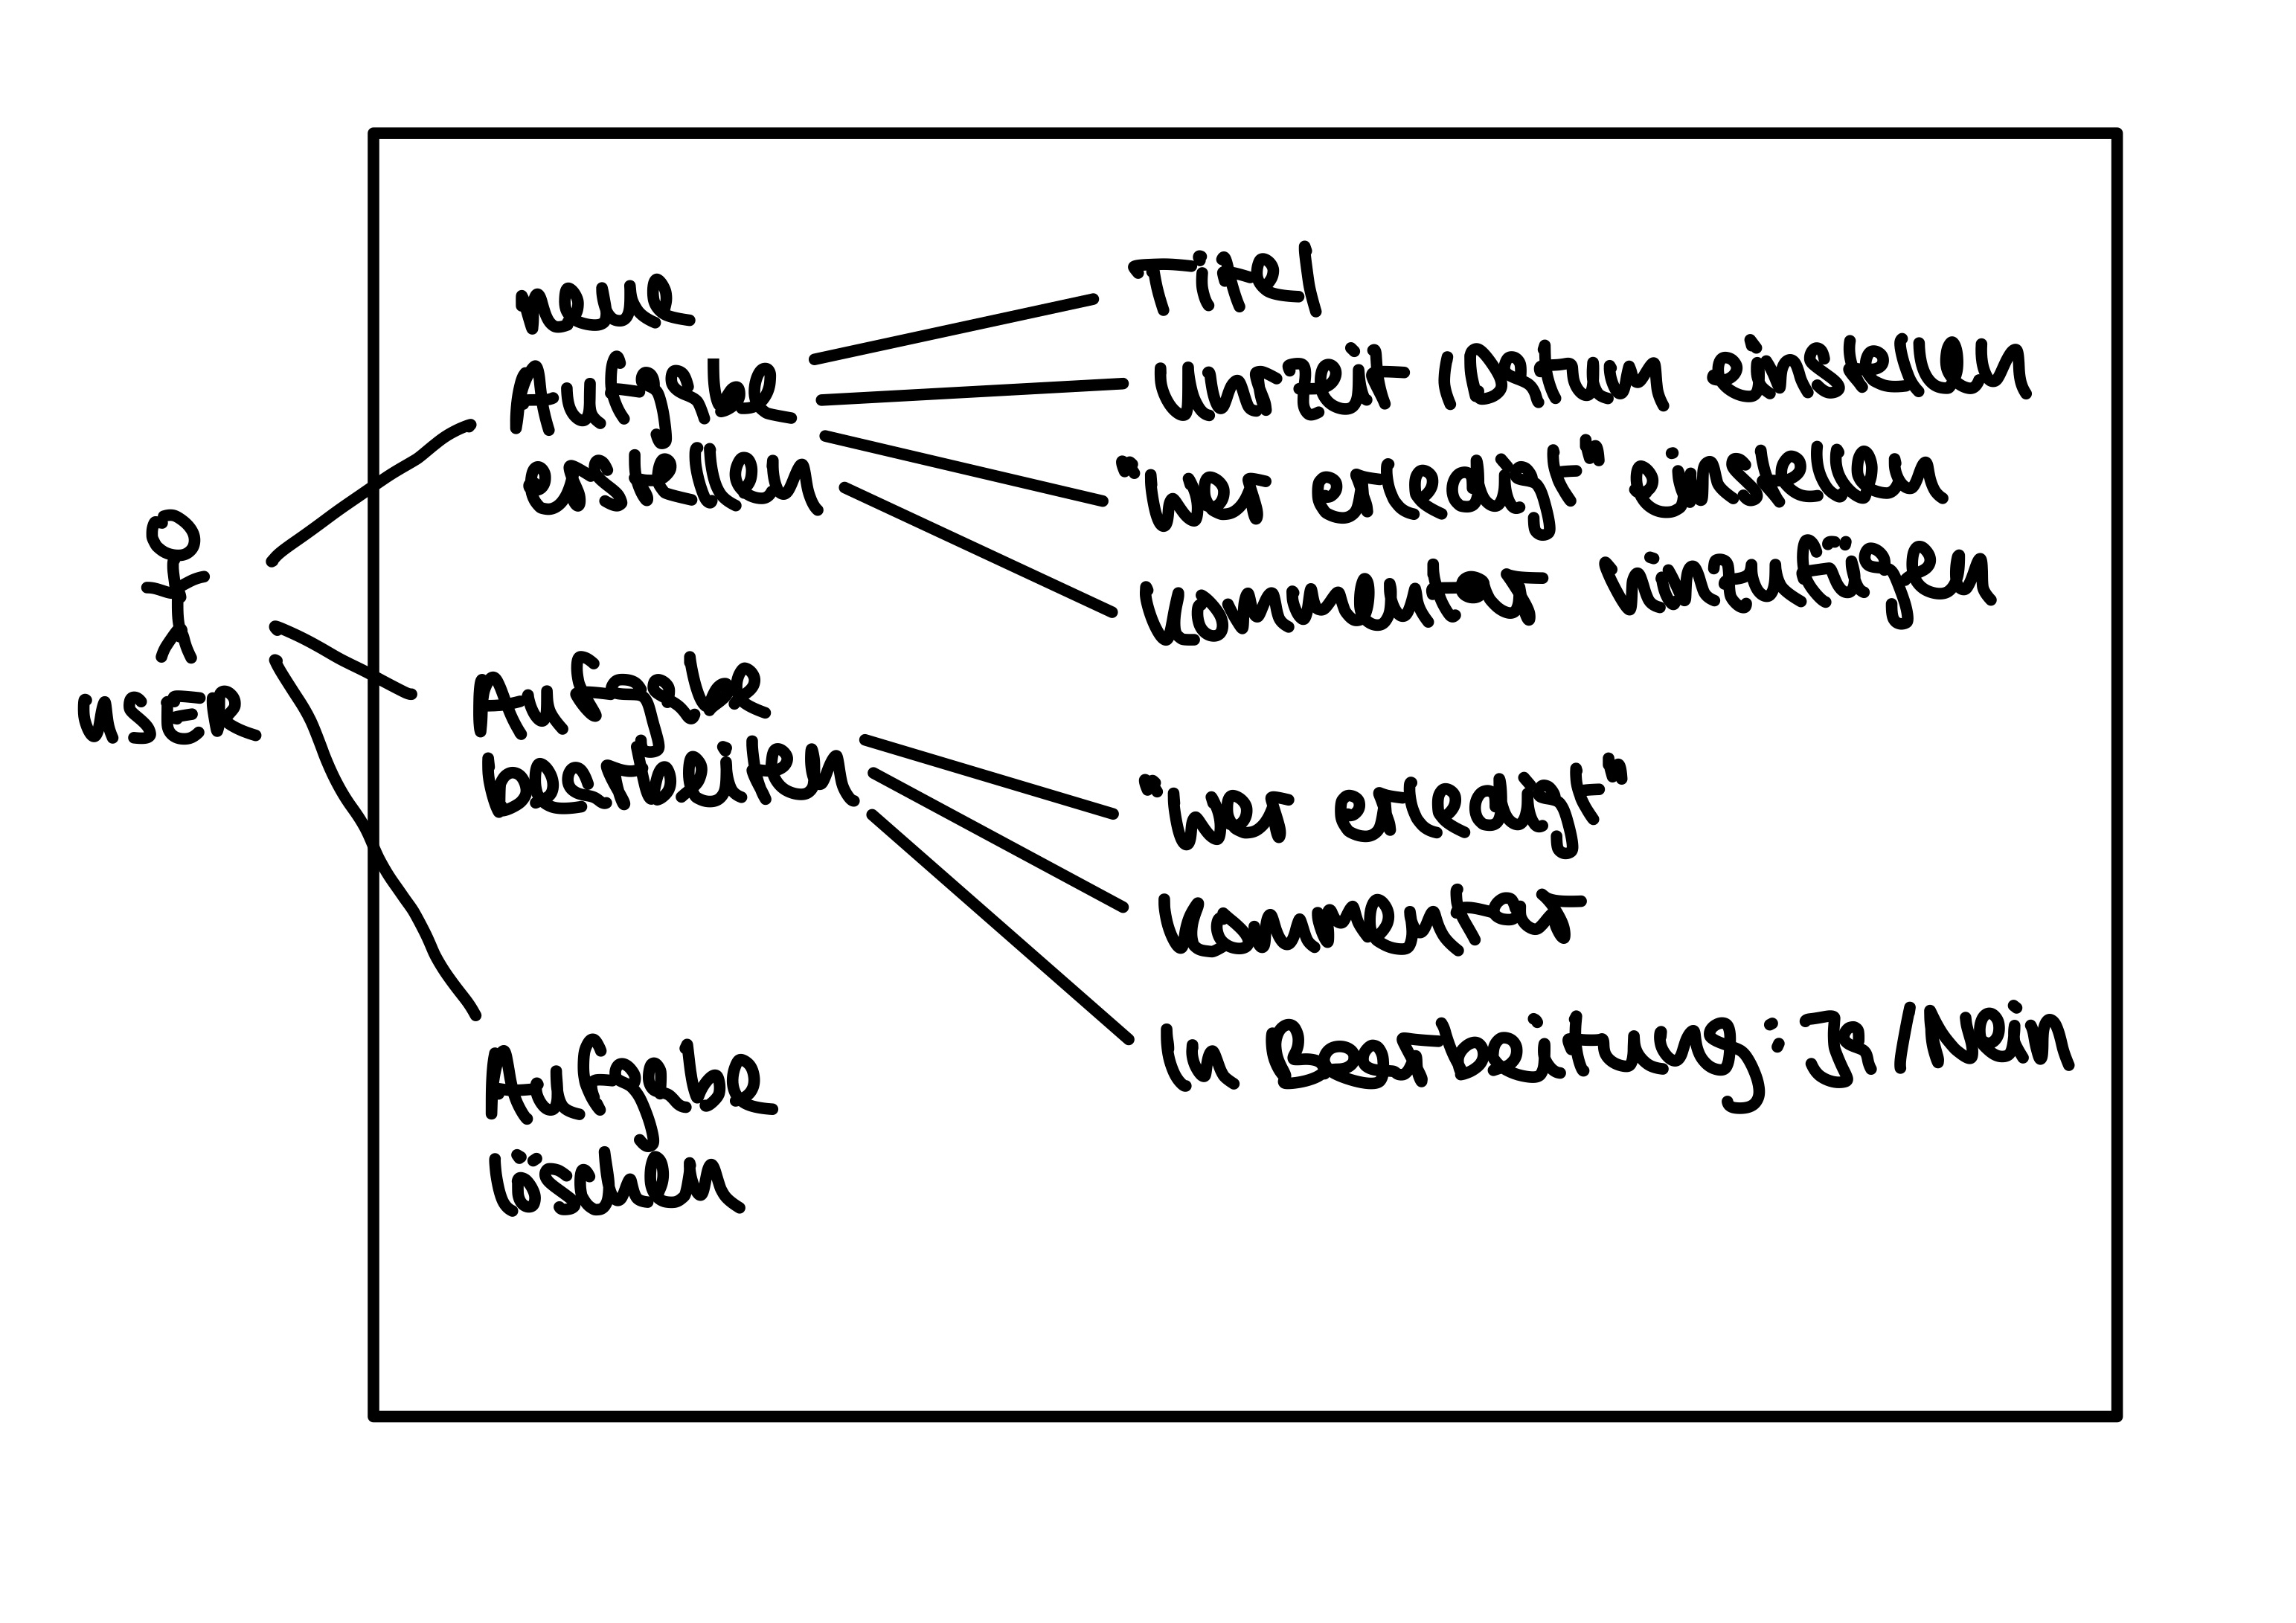 neue
Aufgabe
erstellen
Titel
Uhrzeit / Datum einstellen
"wer erledigt" einstellen
Kommentar hinzufügen
USER
Aufgabe
bearbeiten
"wer erledigt"
Kommentar
In Bearbeitung: Ja / Nein
Aufgabe
löschen